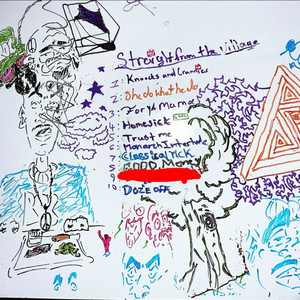 Straight from the village
and Crannies
She do what he do
For ya Mama
Homesick
Trust me
Monarch Interlude
Classical
10: Doze off